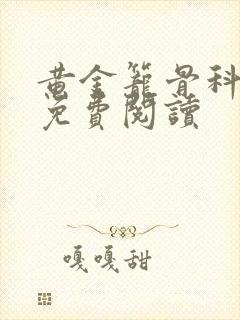 黄金籠骨科
免費閱讀
嘎嘎甜